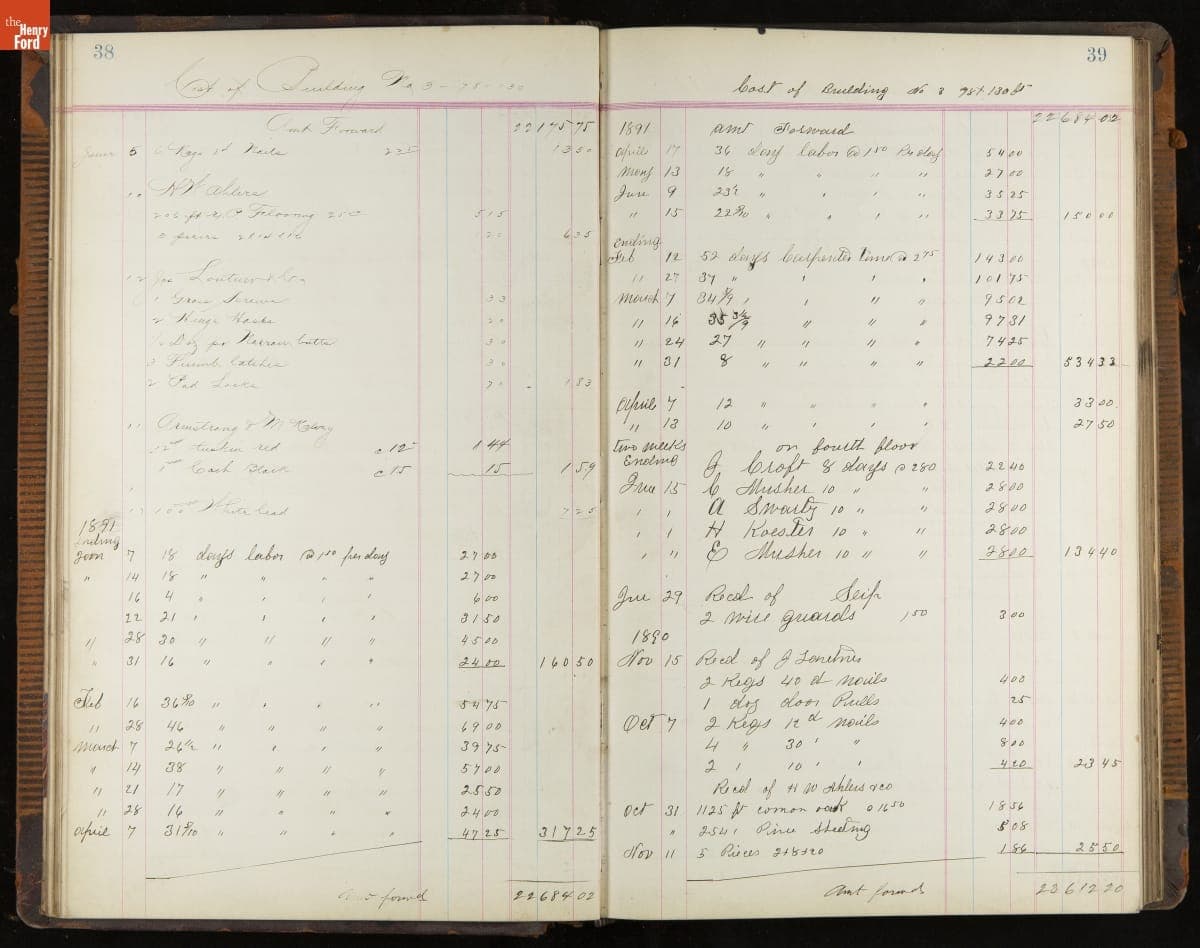 the Henry Ford
38
Cost of Building No 3 - 75 - 130
Amt Forward 22175 75
5 6 Kegs 8d Nails 225 13 50
10 H W Ahlers
Flooring 25 5 15
3 pieces 1 20 6 35
12 Jas
1 Gross Screws 33
2 Hinge Hasps 20
1/2 Doz pr Narrow butts 30
3 Thumb latches 30
2 Pad Locks 70 1 83
11 Armstrong & McKelvy
12# tuskin red c 12 1 44
1# Cash Black c 15 15 1 59
17 100# White lead 7 25
1891
Ending
Jan 7 18 days labor @ 1 50 per day 27 00
" 14 18 " " " " 27 00
16 4 " " " " 6 00
22 21 " " " " 31 50
" 28 30 " " " 45 00
" 31 16 " " " 24 00 160 50
Feb 16 36 5/10 " " " " 54 75
" 28 46 " " " " 69 00
March 7 26 1/2 " " " " 39 75
" 14 38 " " " " 57 00
" 21 17 " " " " 25 50
" 28 16 " " " " 24 00
April 7 31 5/10 " " " " 47 25 317 25
Amt forwd 22684 02
39
Cost of Building No 3 75+130 ft
1891 amt Forward 22684 02
April 17 36 days labor @ 1 50 Per day 54 00
May 13 18 " " " " 27 00
June 9 23 1/2 " " " " 35 25
" 15 22 5/10 " " " " 33 75 150 00
Ending
Feb 12 52 days Carpenter time @ 2 75 143 00
" 27 37 " " " " 101 75
March 7 34 5/9 " " " " 95 02
" 16 35 " " " 97 31
" 24 27 " " " " 74 25
" 31 8 " " " " 22 00 534 33
April 7 12 " " " " 33 00
" 13 10 " " " " 27 50
two weeks on fourth floor
Ending J Croft 8 days @ 2 80 22 40
June 15 C Musher 10 " " 28 00
" " A Swartz 10 " " 28 00
" " H Koester 10 " " 28 00
" " E Musher 10 " " 28 00 134 40
Jne 29 Recd of Seip
2 wire guards 1 50 3 00
1890
Nov 15 Recd of J
2 Kegs 40 d nails 4 00
1 doz door Pulls 25
Oct 7 2 Kegs 12 d nails 4 00
4 " 30 " " 8 00
2 " 10 " " 4 20 23 45
Recd of H W Ahlers & co
Oct 31 1125 ft comon oak @ 16 50 18 56
" 254 " Pine Sheeting 5 08
Nov 11 5 Pieces 2+8+20 1 86 25 50
Amt forwd 23612 20